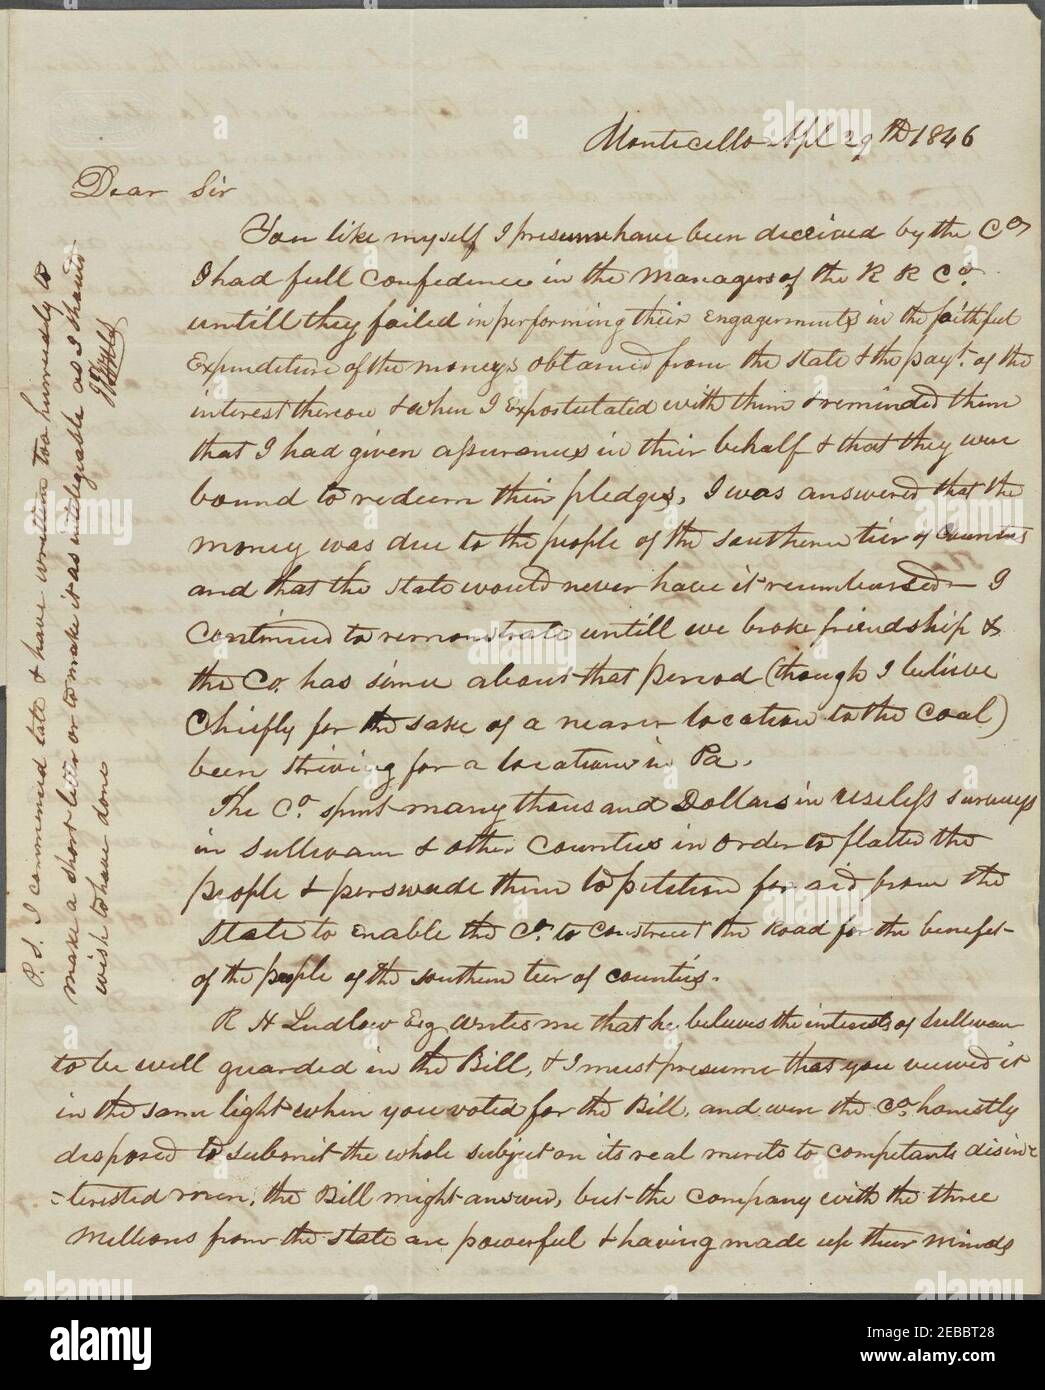 Monticello Apl 29th 1846
Dear Sir
You like myself I presume have been deceived by the Co,
I had full confidence in the managers of the R R Co.
untill they failed in performing their engagements in the faithful
Expenditure of the moneys obtained from the state & the payt. of the
interest thereon & when I Expostulated with them & reminded them
that I had given assurances in their behalf & that they were
bound to redeem their pledges, I was answered that the
money was due to the people of the southern tier of Counties
and that the state would never have it reimbursed — I
Continued to remonstrate untill we broke friendship &
the Co. has since about that period (though I believe
Chiefly for the sake of a nearer location to the coal)
been striving for a location in Pa.
The Co. spent many thousand Dollars in useless surveys
in Sullivan & other Counties in order to flatter the
people & perswade them to petition for aid from the
State to enable the Co. to Construct the Road for the benefit
of the people of the southern tier of counties.
R H Ludlow Esq writes me that he believes the interests of Sullivan
to be well guarded in the Bill, & I must presume that you viewed it
in the same light when you voted for the Bill, and were the Co. honestly
disposed to submit the whole subject on its real merits to competant disin=
=terested men, the Bill might answer, but the company with the three
Millions from the state are powerful & having made up their minds
P.S. I commenced late & have written too hurriedly to
make a short letter or to make it as intelegiable as I should
wish to have done
alamy
Image ID: 2EBBT28
www.alamy.com